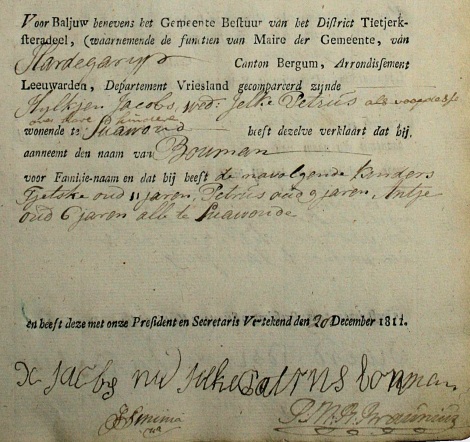 Voor Baljuw benevens het Gemeente Bestuur van het District Tietjerk-
steradeel, (waarnemende de functien van Maire der Gemeente, van
Hardegaryp
Canton Bergum, Arrondissement
Leeuwarden, Departement Vriesland gecompareerd zijnde
Jacobs, wed: Jelke Petrus als
over hare kinders
wonende te Suawoud heeft dezelve verklaart dat hij
aanneemt den naam van Bouman
voor Familie-naam en dat hij heeft de navolgende kinders
Tjetske oud 11 jaren, Petrus oud 9 jaren, Antje
oud 6 jaren alle te Suawoude
en heeft deze met onze President en Secretaris Vertekend den 20 December 1811.
Jacobs wed Jelke Petrus bouman